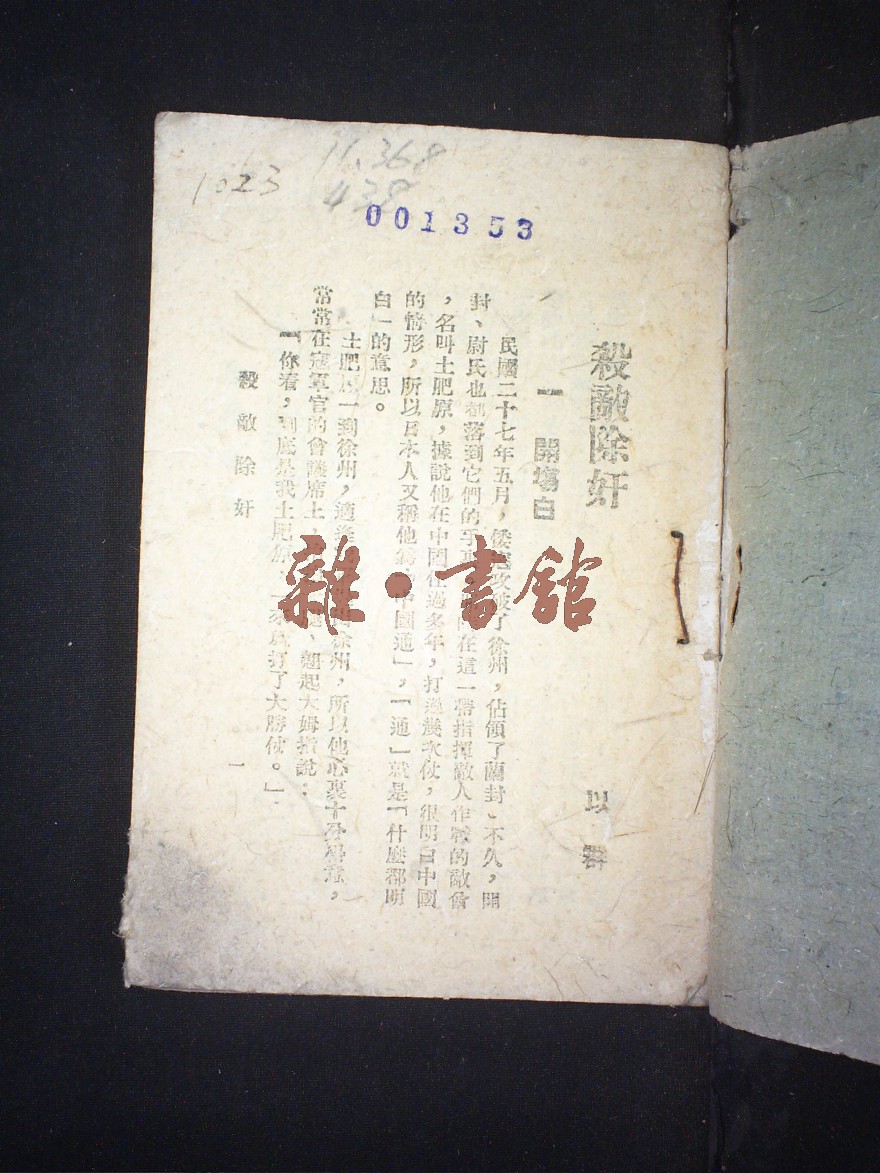 1023
11,368
438
001353
殺敵除奸
以羣
一 開場白
民國二十七年五月，倭寇攻破了徐州，佔領了蘭封、不久，開
封、尉氏也都落到它們的手 在這一帶指揮敵人作戰的敵酋
，名叫土肥原，據說他在中國住過多年，打過幾次仗，很明白中國
的情形，所以日本人又稱他爲「中國通」，「通」就是「什麼都明
白」的意思。
土肥原一到徐州，適逢 徐州，所以他心裏十分得意，
常常在寇軍官的會議席上， 、翹起大姆指說：
「你看，到底是我土肥原 打了大勝仗。」
殺敵除奸
一
雜·書館